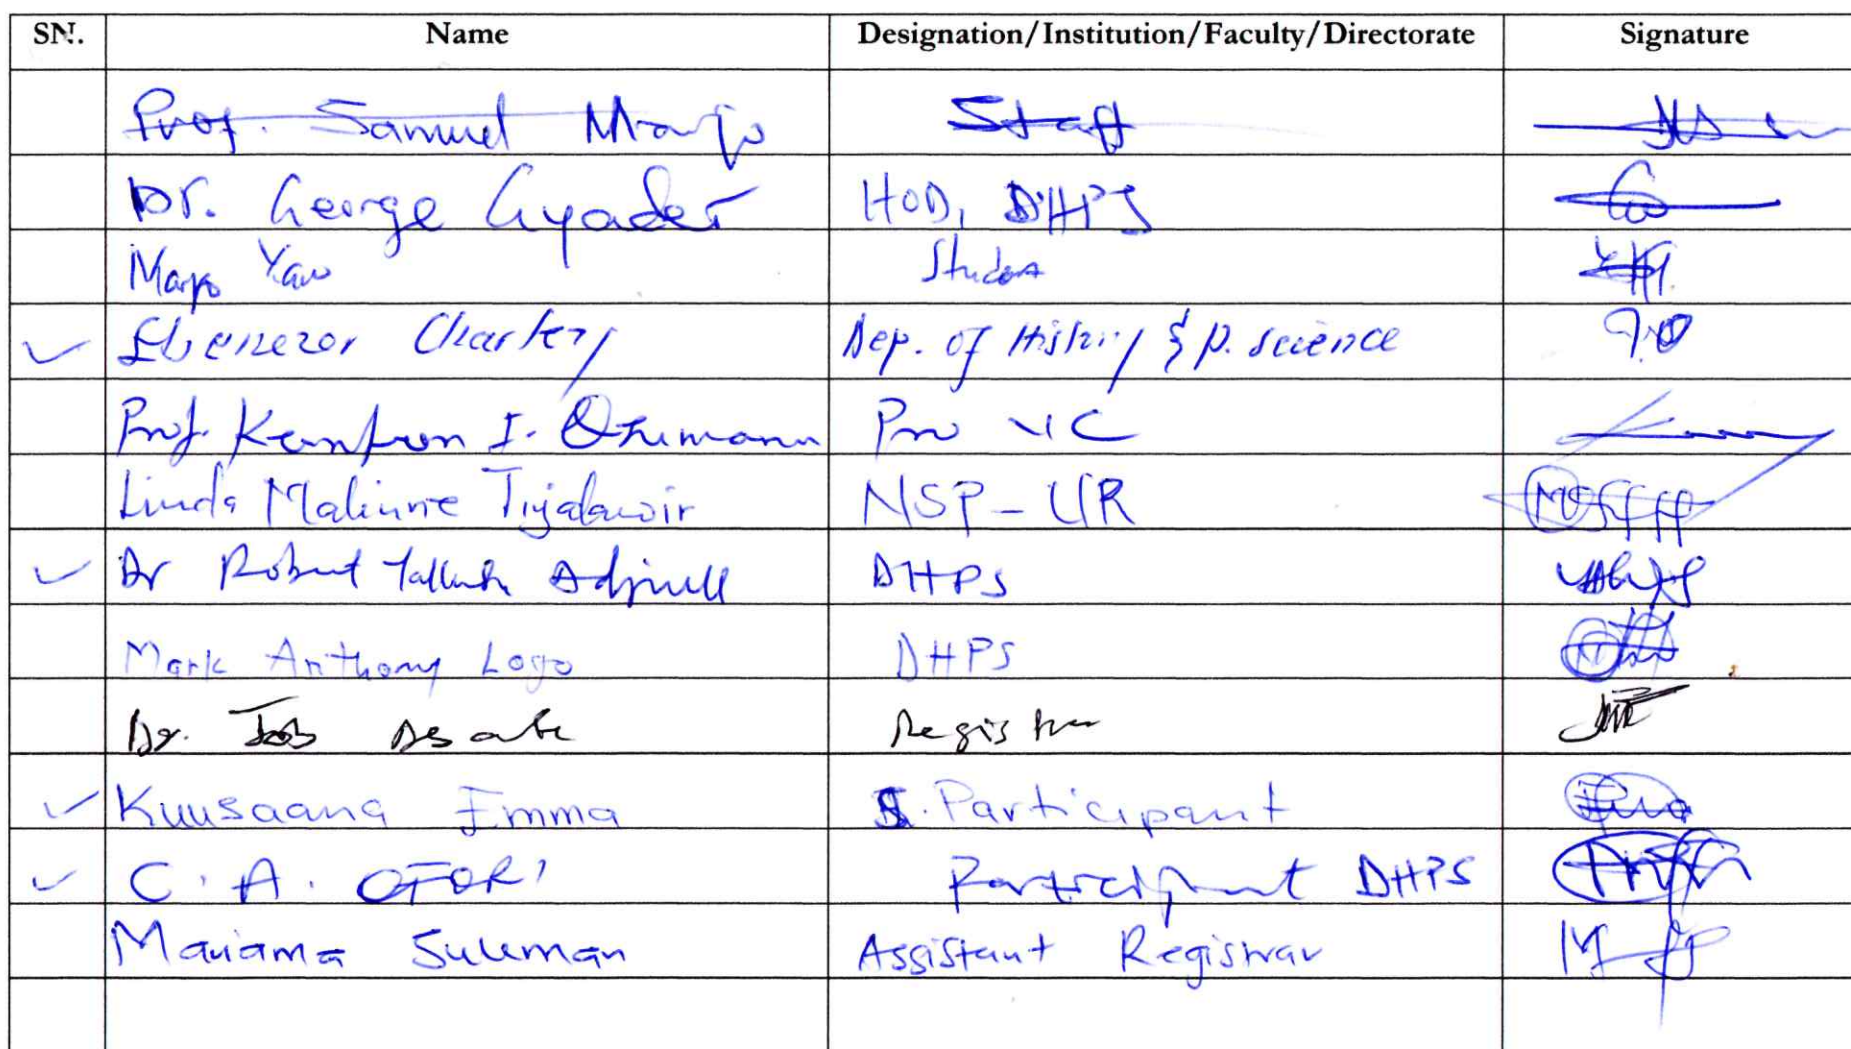 SN. Name Designation/Institution/Faculty/Directorate Signature
Prof. Samuel Marfo Staff
Dr. George Gyader HOD, DHPS
Marfo Yaw Student
✓ Ebenezer Chartey Dep. of History & P. science
Prof. I. Pro VC
Linda NSP-UR
✓ Dr Robert DHPS
Mark Anthony Logo DHPS
Dr. Job Asante Registrar
✓ Kuusaana Emma Participant
✓ C. A. OFORI Participant DHPS
Mariama Suleman Assistant Registrar